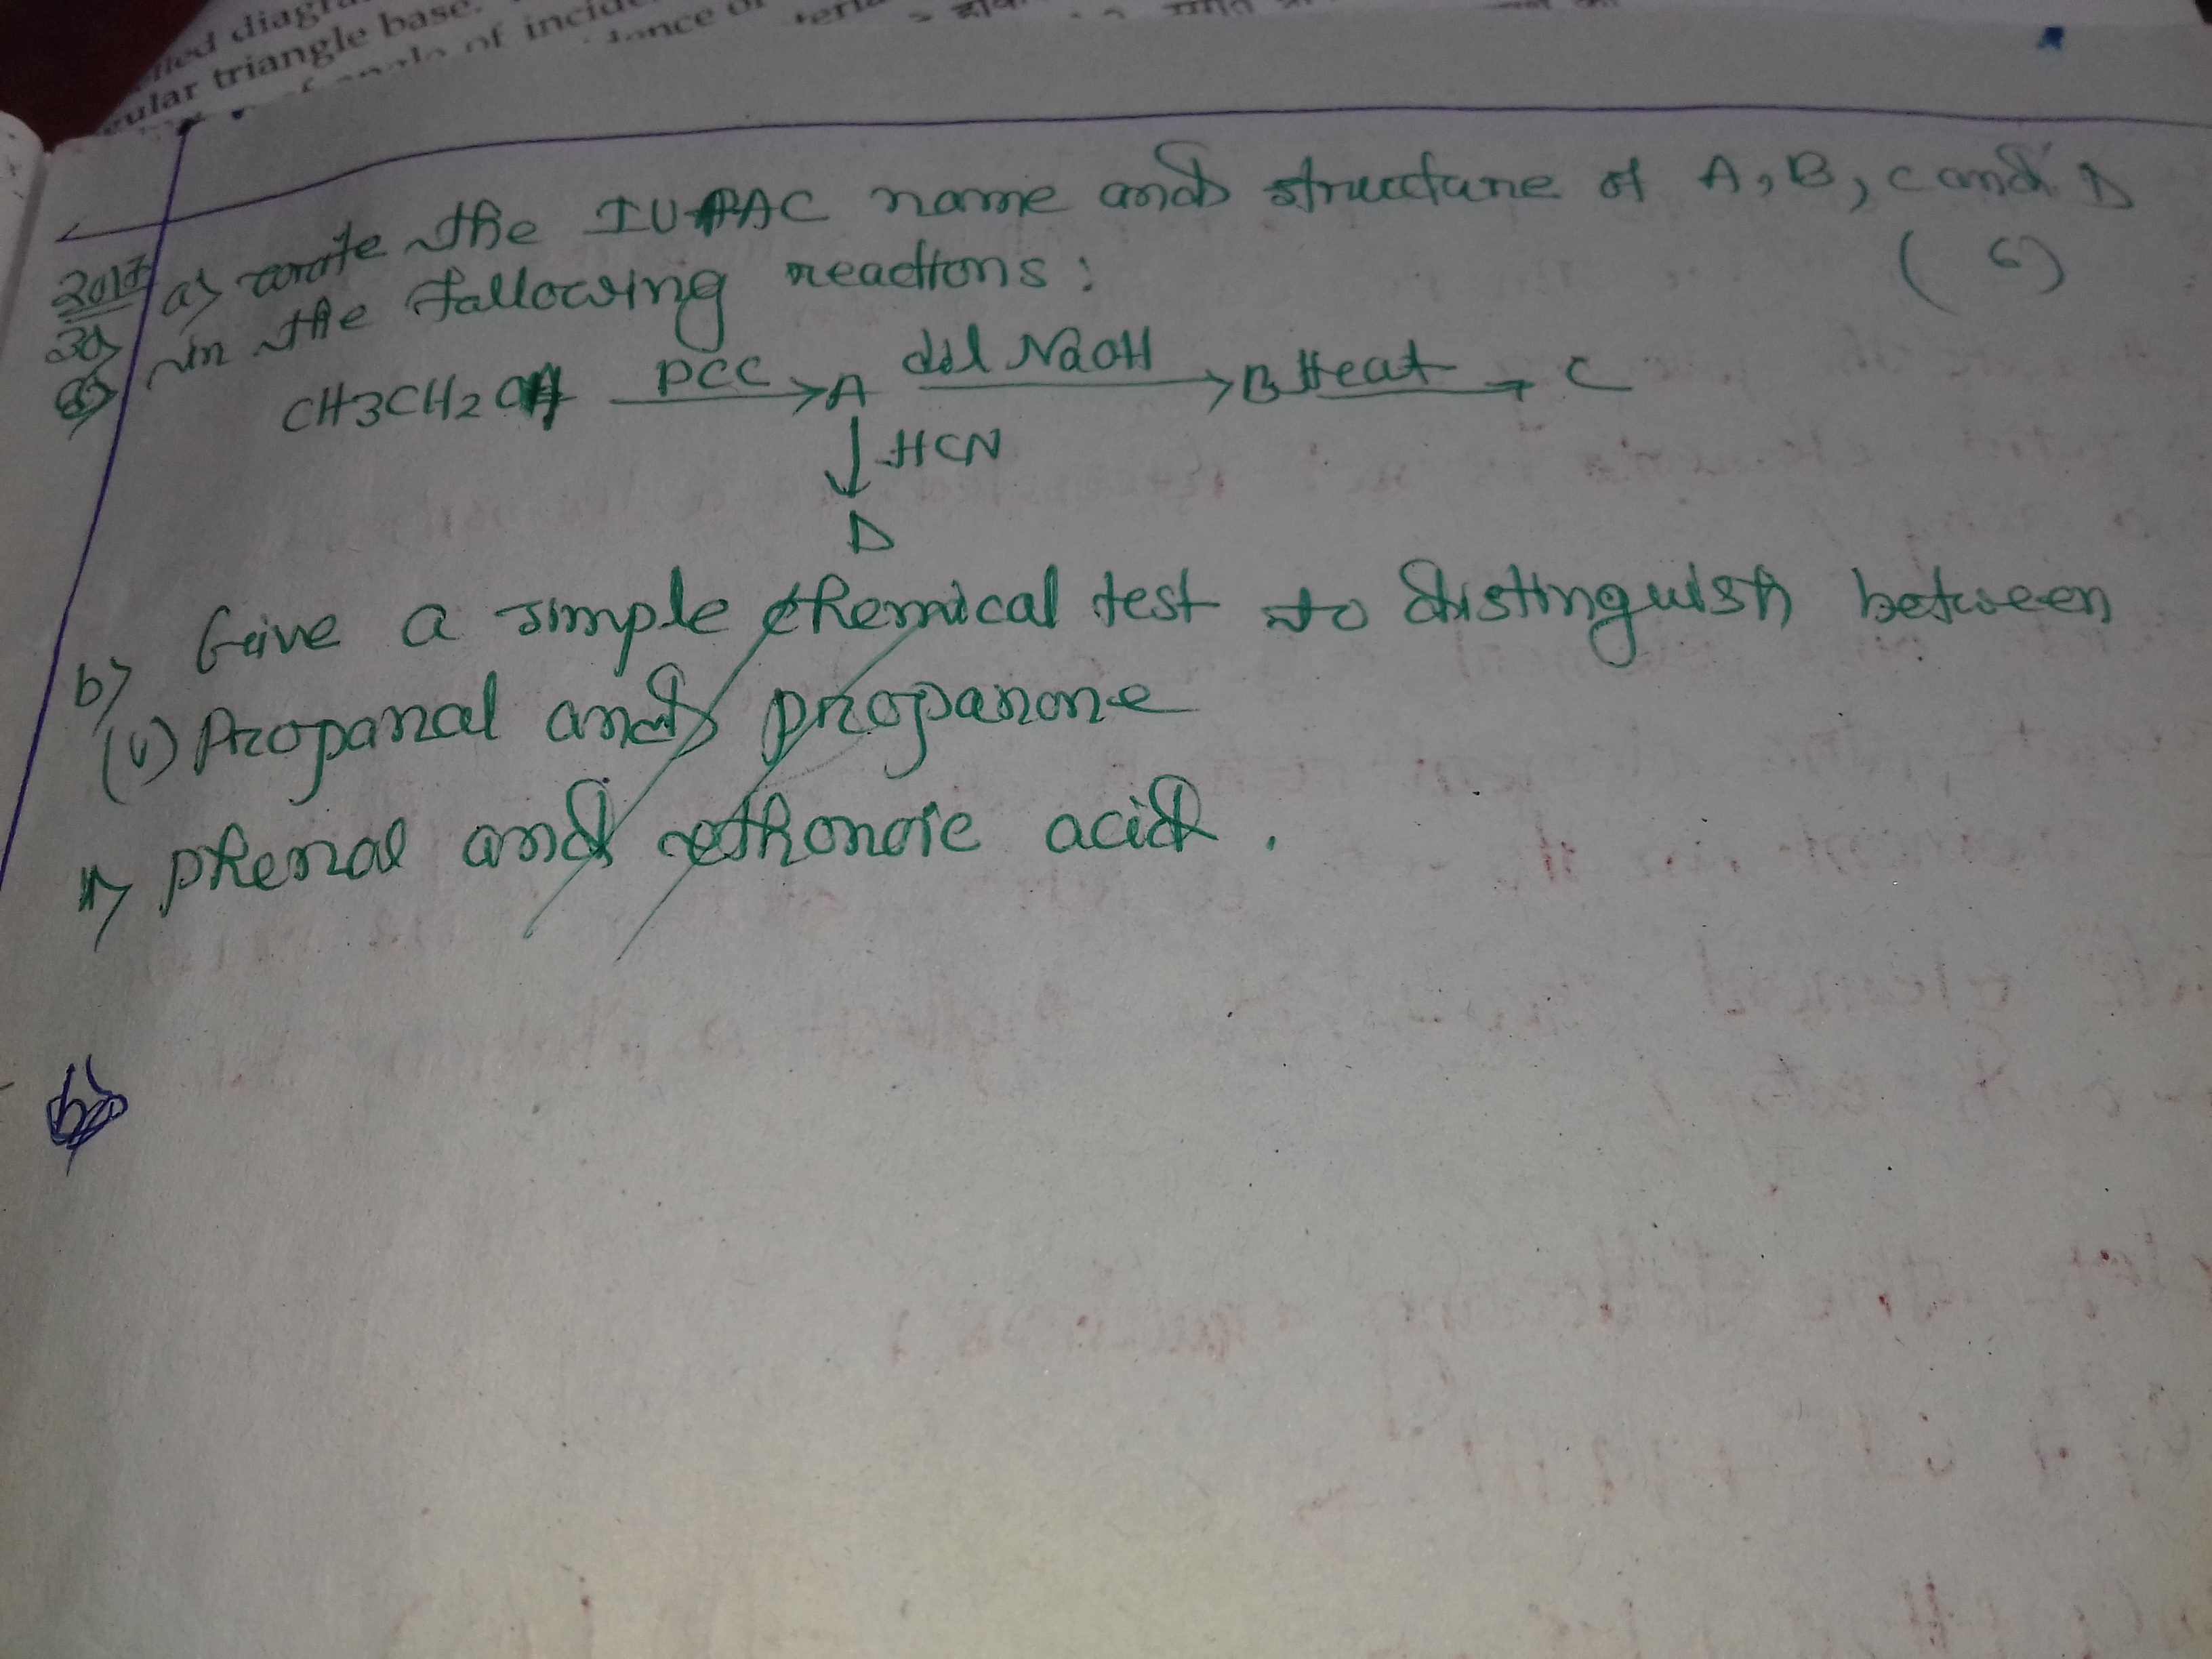 ied diagra
ular triangle base.
of incide
2017 a) write the IUPAC name and structure of A, B, C and D
30) in the following reactions: (6)
CH3CH2OH PCC A dil NaOH B Heat C
HCN
D
b) Give a simple chemical test to distinguish between
(i) Propanal and propanone
phenol and ethonoic acid.
b)